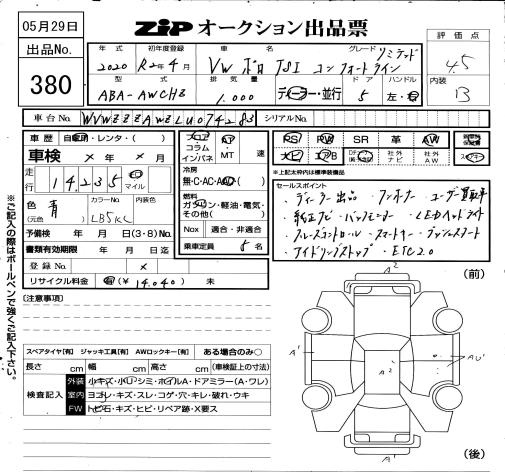 05月29日
ZiP オークション出品票
出品No.
380
評価点
4.5
内装
B
年式 初年度登録 車名 グレード
2020 R2年4月 VW ポロ TSI コンフォートライン リミテッド
型式 排気量 ドア ハンドル
ABA-AWCHZ 1.000 ディーラー・並行 5 左・右
車台No. シリアルNo.
車歴 自家用・レンタ・( )
車検 × 年 × 月 日
走行 14235 マイル
色 青 (元色) カラーNo. LB5K 内装色
予備検 年 月 日(3・8)No.
書類有効期限 年 月 日迄
登録No. ×
リサイクル料金 有(¥ 14,040) 未
フロア コラム インパネ AT ・MT 速
冷房 無・C・AC・AAC
燃料 ガソリン・軽油・電気・その他( )
Nox 適合・非適合
乗車定員 5 名
PS PW SR 革 AW
ナビ エアB 社外ナビ 社外AW
※上記太枠内は標準装備品
セールスポイント
・ディーラー出品 ・ワンオーナー ・ユーザー買取車
・純正ナビ ・バックモニター ・LEDヘッドライト
・クルーズコントロール ・スマートキー ・プッシュスタート
・アイドリングストップ ・ETC2.0
(注意事項)
スペアタイヤ[有] ジャッキ工具[有] AWロックキー[有] ある場合のみ○
長さ cm 幅 cm 高さ cm (車検証上の寸法)
検査記入
外装 小キズ・小凹・シミ・ホイルA・ドアミラー(A・ワレ)
室内 ヨゴレ・キズ・スレ・コゲ・穴・キレ・破れ・ウキ
FW トビ石・キズ・ヒビ・リペア跡・X要ス
※ご記入の際はボールペンで強くご記入下さい。
(前)
A2
A1
A2
AU1
A2
(後)